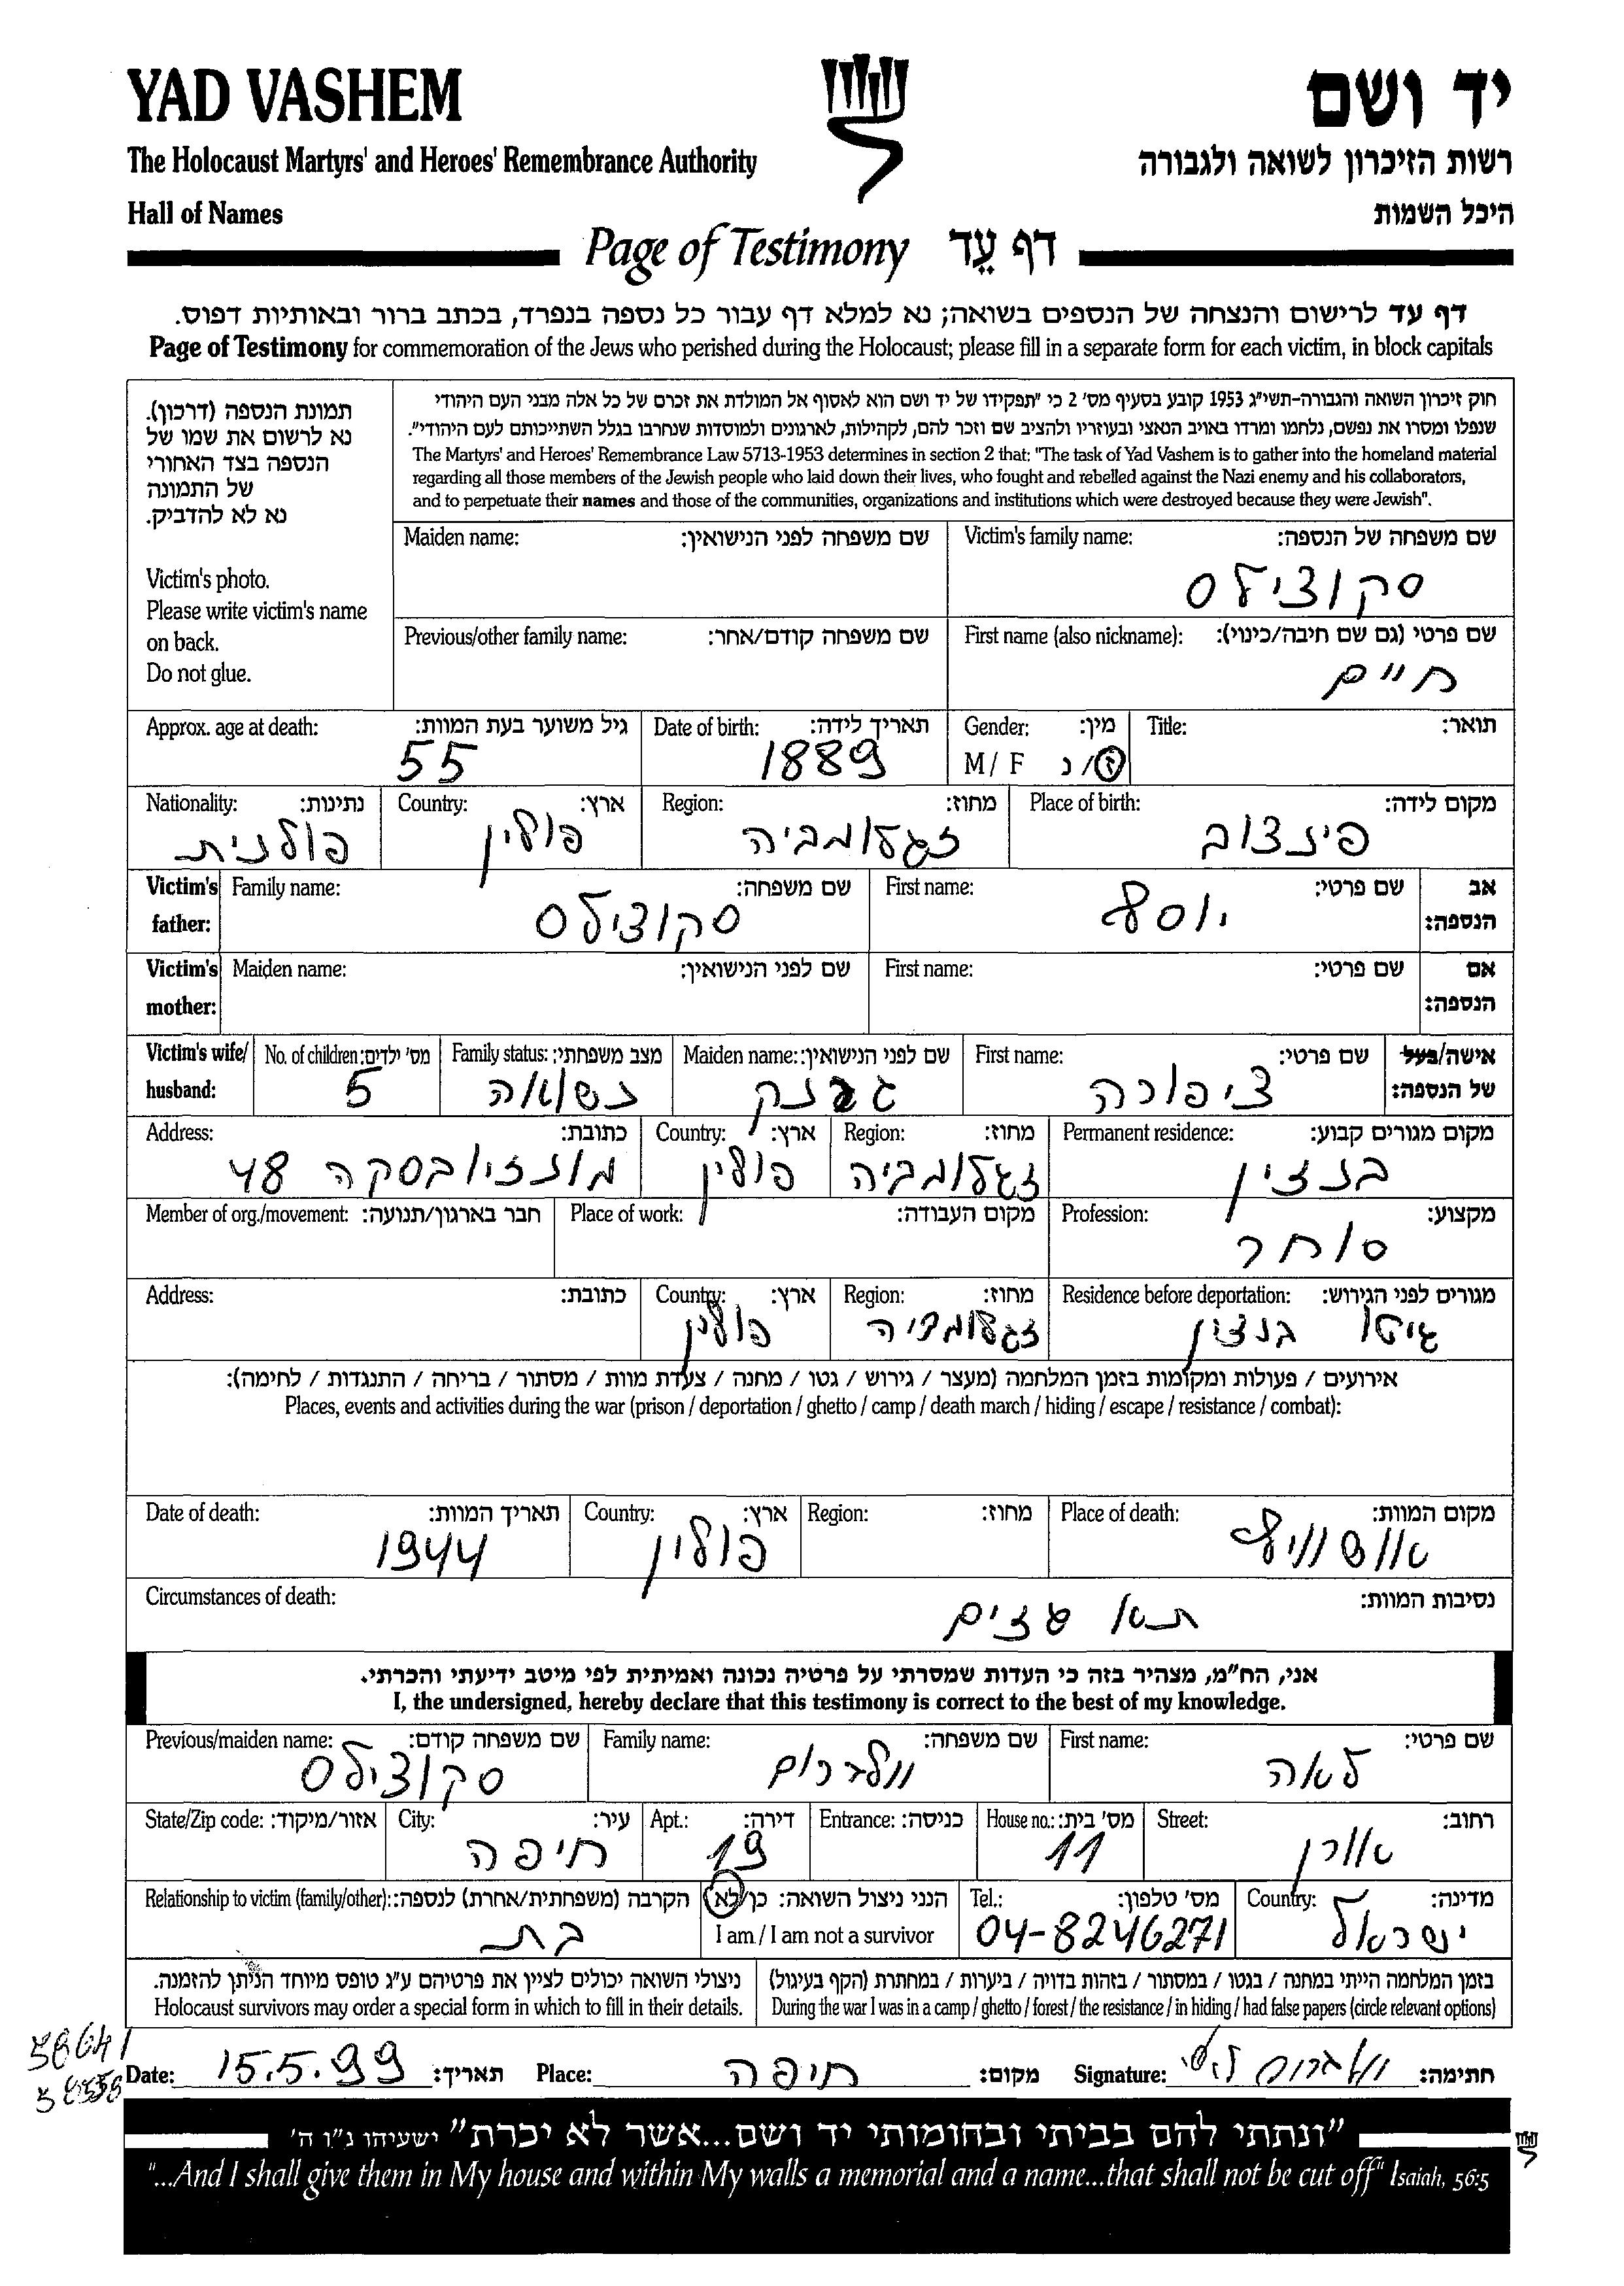 YAD VASHEM
יד ושם
The Holocaust Martyrs' and Heroes' Remembrance Authority
רשות הזיכרון לשואה ולגבורה
Hall of Names
היכל השמות
Page of Testimony דף עֵד
דף עד לרישום והנצחה של הנספים בשואה; נא למלא דף עבור כל נספה בנפרד, בכתב ברור ובאותיות דפוס.
Page of Testimony for commemoration of the Jews who perished during the Holocaust; please fill in a separate form for each victim, in block capitals
תמונת הנספה (דרכון).
נא לרשום את שמו של
הנספה בצד האחורי
של התמונה
נא לא להדביק.
Victim's photo.
Please write victim's name
on back.
Do not glue.
חוק זיכרון השואה והגבורה-תשי"ג 1953 קובע בסעיף מס' 2 כי "תפקידו של יד ושם הוא לאסוף אל המולדת את זכרם של כל אלה מבני העם היהודי
שנפלו ומסרו את נפשם, נלחמו ומרדו באויב הנאצי ובעוזריו ולהציב שם וזכר להם, לקהילות, לארגונים ולמוסדות שנחרבו בגלל השתייכותם לעם היהודי".
The Martyrs' and Heroes' Remembrance Law 5713-1953 determines in section 2 that: "The task of Yad Vashem is to gather into the homeland material
regarding all those members of the Jewish people who laid down their lives, who fought and rebelled against the Nazi enemy and his collaborators,
and to perpetuate their names and those of the communities, organizations and institutions which were destroyed because they were Jewish".
שם משפחה של הנספה: Victim's family name: שם משפחה לפני הנישואין: Maiden name:
סקוצילס
שם פרטי (גם שם חיבה/כינוי): First name (also nickname): שם משפחה קודם/אחר: Previous/other family name:
חיים
תואר: Title: מין: Gender: תאריך לידה: Date of birth: גיל משוער בעת המוות: Approx. age at death:
ז/נ M/ F 1889 55
מקום לידה: Place of birth: מחוז: Region: ארץ: Country: נתינות: Nationality:
פינצוב זגלומביה פולין פולנית
אב שם פרטי: First name: שם משפחה: Family name: Victim's
הנספה: יוסף סקוצילס father:
אם שם פרטי: First name: שם לפני הנישואין: Maiden name: Victim's
הנספה: mother:
אישה/בעל שם פרטי: First name: שם לפני הנישואין: Maiden name: מצב משפחתי: Family status: מס' ילדים: No. of children: Victim's wife/
של הנספה: ציפורה נשואה 5 husband:
מקום מגורים קבוע: Permanent residence: מחוז: Region: ארץ: Country: כתובת: Address:
בנדזין זגלומביה פולין 48
מקצוע: Profession: מקום העבודה: Place of work: חבר בארגון/תנועה: Member of org./movement:
סוחר
מגורים לפני הגירוש: Residence before deportation: מחוז: Region: ארץ: Country: כתובת: Address:
גיטו בנדזין זגלומביה פולין
אירועים / פעולות ומקומות בזמן המלחמה (מעצר / גירוש / גטו / מחנה / צעדת מוות / מסתור / בריחה / התנגדות / לחימה):
Places, events and activities during the war (prison / deportation / ghetto / camp / death march / hiding / escape / resistance / combat):
מקום המוות: Place of death: מחוז: Region: ארץ: Country: תאריך המוות: Date of death:
אושוויץ פולין 1944
נסיבות המוות: Circumstances of death:
תאו גזים
אני, הח"מ, מצהיר בזה כי העדות שמסרתי על פרטיה נכונה ואמיתית לפי מיטב ידיעתי והכרתי.
I, the undersigned, hereby declare that this testimony is correct to the best of my knowledge.
שם פרטי: First name: שם משפחה: Family name: שם משפחה קודם: Previous/maiden name:
לאה וולברום סקוצילס
רחוב: Street: מס' בית: House no.: כניסה: Entrance: דירה: Apt.: עיר: City: אזור/מיקוד: State/Zip code:
אורן 11 19 חיפה
מדינה: Country: מס' טלפון: Tel.: הנני ניצול השואה: כן/לא הקרבה (משפחתית/אחרת) לנספה: Relationship to victim (family/other):
ישראל 04-8246271 I am / I am not a survivor בת
בזמן המלחמה הייתי במחנה / בגטו / במסתור / בזהות בדויה / ביערות / במחתרת (הקף בעיגול)
During the war I was in a camp / ghetto / forest / the resistance / in hiding / had false papers (circle relevant options)
ניצולי השואה יכולים לציין את פרטיהם ע"ג טופס מיוחד הניתן להזמנה.
Holocaust survivors may order a special form in which to fill in their details.
Date: 15.5.99 תאריך: Place: חיפה מקום: Signature: חתימה:
"ונתתי להם בביתי ובחומותי יד ושם...אשר לא יכרת" ישעיהו נ"ו ה'
"...And I shall give them in My house and within My walls a memorial and a name...that shall not be cut off" Isaiah, 56:5